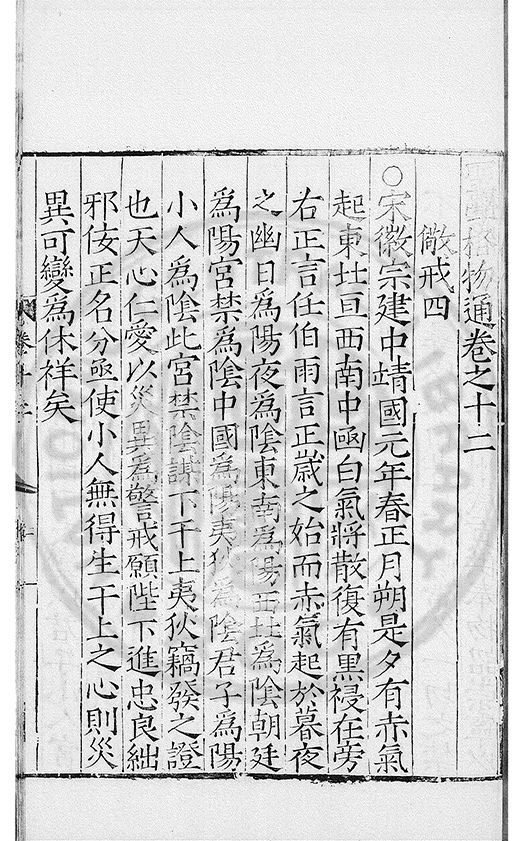 格物通卷之十二
儆戒四
○宋徽宗建中靖國元年春正月朔是夕有赤氣
起東北亘西南中凾白氣將散復有黑祲在旁
右正言任伯雨言正歲之始而赤氣起於暮夜
之幽日爲陽夜爲陰東南爲陽西北爲陰朝廷
爲陽宮禁爲陰中國爲陽夷狄爲陰君子爲陽
小人爲陰此宮禁陰謀下干上夷狄竊發之證
也天心仁愛以災異爲警戒願陛下進忠良絀
邪佞正名分亟使小人無得生干上之心則災
異可變爲休祥矣
卷十二